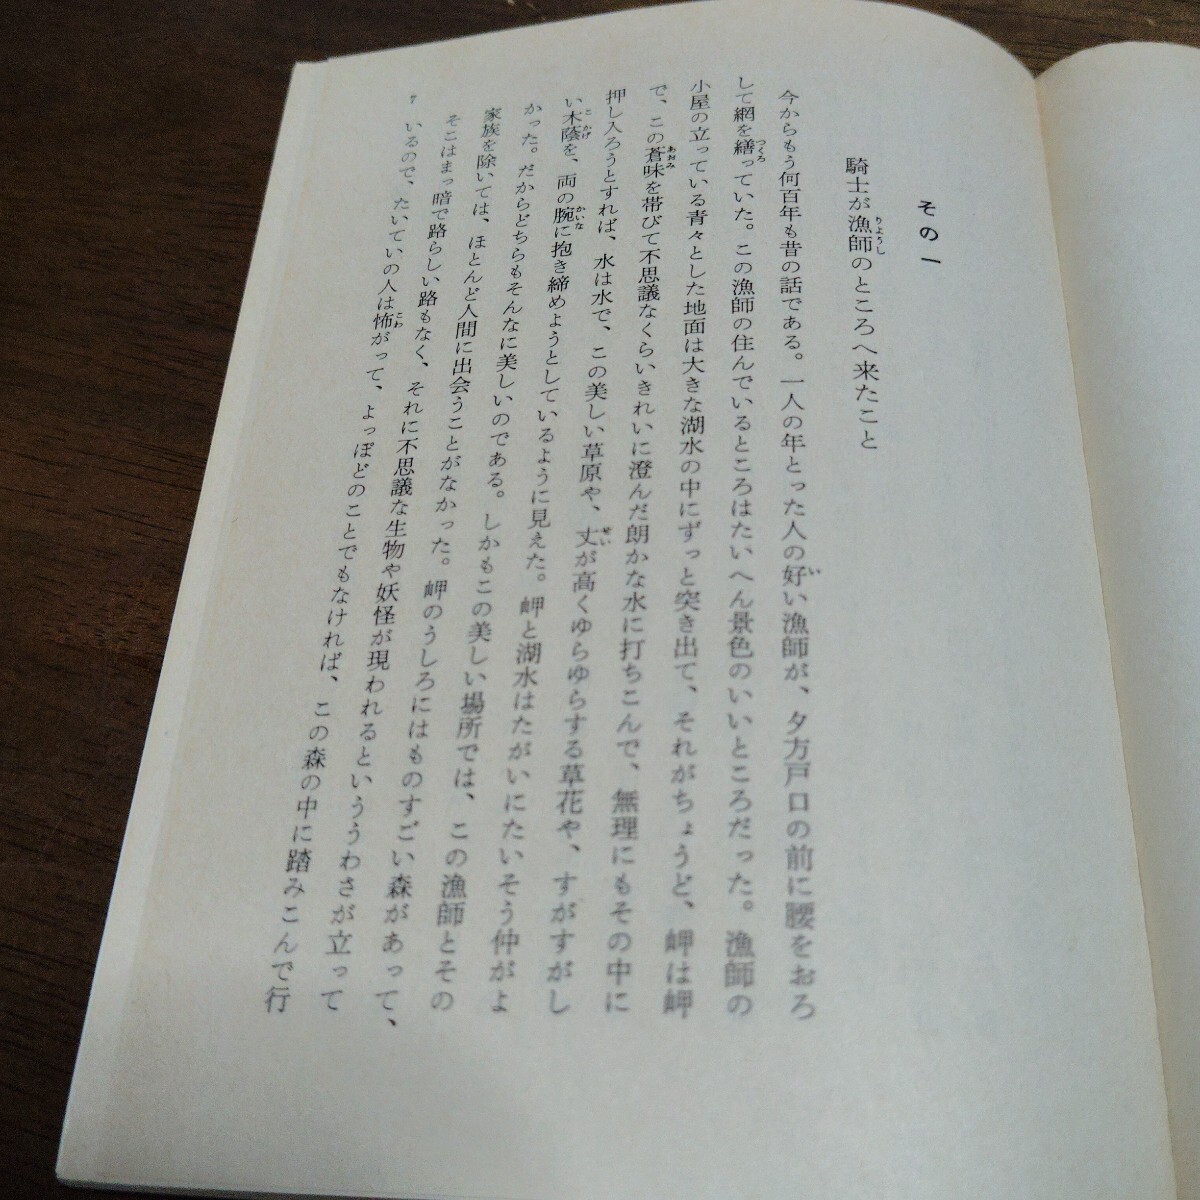 その一
騎士が漁師のところへ来たこと
りょうし
今からもう何百年も昔の話である。一人の年とった人の好い漁師が、夕方戸口の前に腰をおろ
い
して網を繕っていた。この漁師の住んでいるところはたいへん景色のいいところだった。漁師の
つくろ
小屋の立っている青々とした地面は大きな湖水の中にずっと突き出て、それがちょうど、岬は岬
で、この蒼味を帯びて不思議なくらいきれいに澄んだ朗かな水に打ちこんで、無理にもその中に
あおみ
押し入ろうとすれば、水は水で、この美しい草原や、丈が高くゆらゆらする草花や、すがすがし
せい
い木蔭を、両の腕に抱き締めようとしているように見えた。岬と湖水はたがいにたいそう仲がよ
こかげ
かいな
かった。だからどちらもそんなに美しいのである。しかもこの美しい場所では、この漁師とその
家族を除いては、ほとんど人間に出会うことがなかった。岬のうしろにはものすごい森があって、
そこはまっ暗で路らしい路もなく、それに不思議な生物や妖怪が現われるといううわさが立って
いるので、たいていの人は怖がって、よっぽどのことでもなければ、この森の中に踏みこんで行
こわ
7